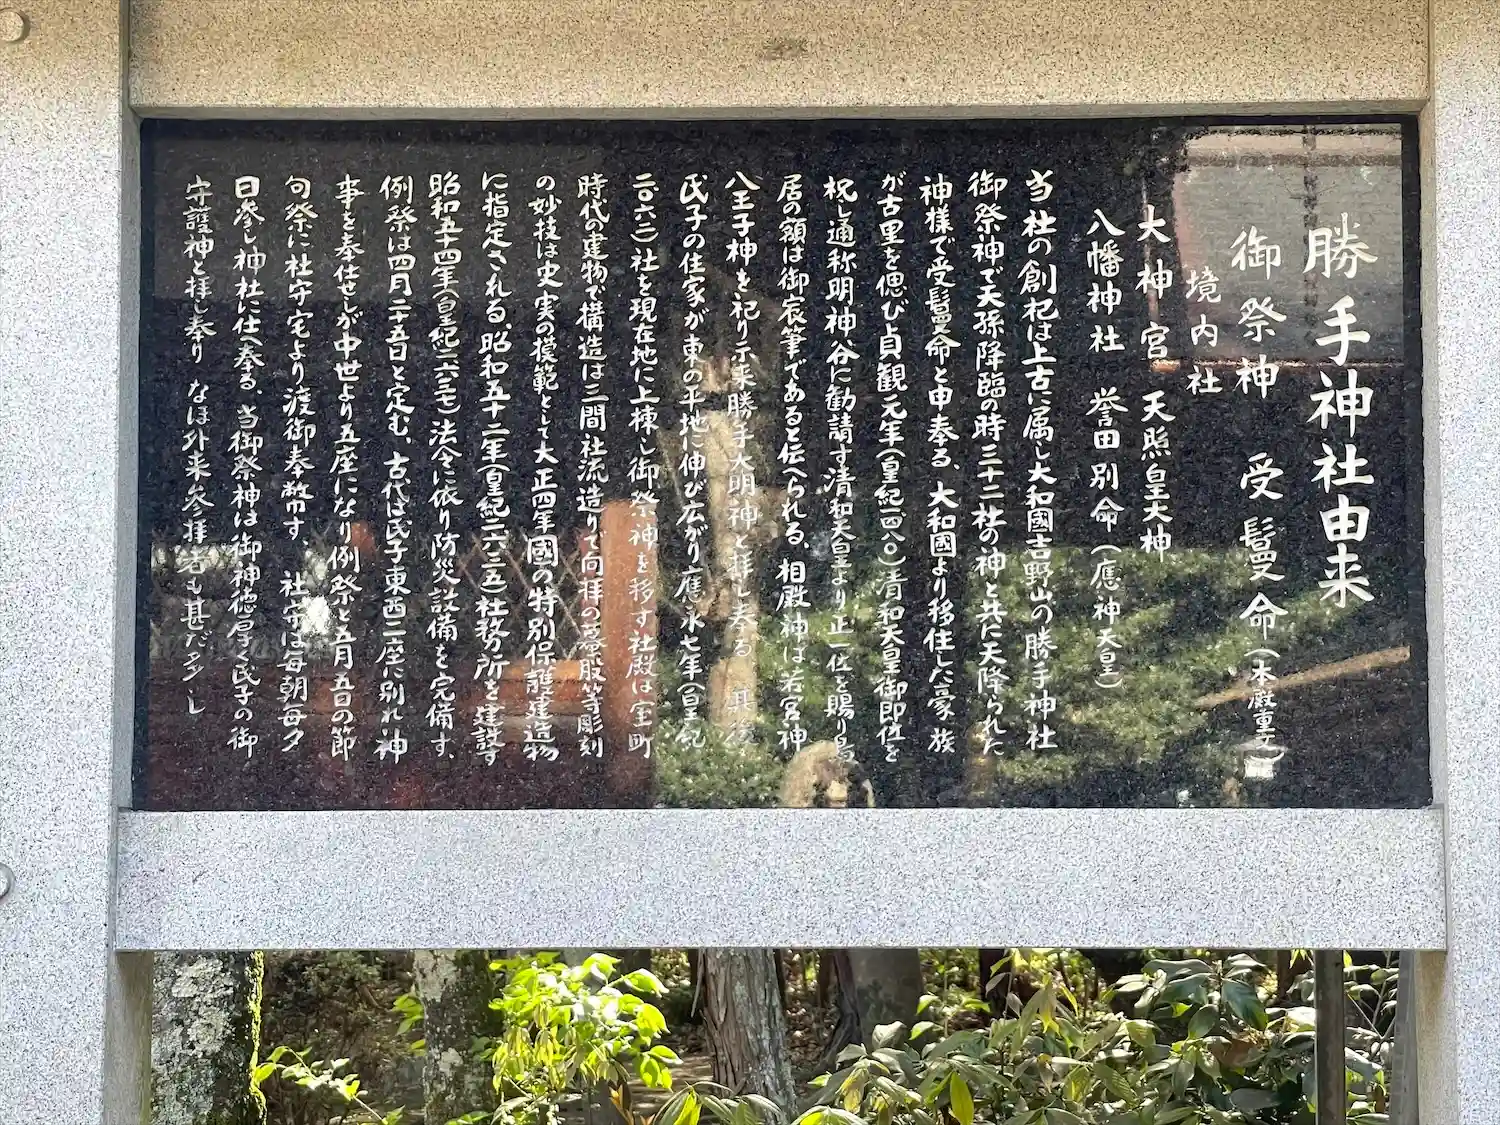 勝手神社由来
御祭神 受鬘命(本殿重文)
境内社
大神宮 天照皇大神
八幡神社 誉田別命(應神天皇)
当社の創祀は上古に属し大和國吉野山の勝手神社
御祭神で天孫降臨の時三十二柱の神と共に天降られた
神様で受鬘命と申奉る、大和國より移住した豪族
が古里を偲び貞観元年(皇紀一四八〇)清和天皇御即位を
祝し通称明神谷に勧請す清和天皇より正一位を賜り鳥
居の額は御宸筆であると伝へられる、相殿神は若宮神
八王子神を祀り示来勝手大明神と拝し奉る 其後
氏子の住家が東の平地に伸び広がり應永七年(皇紀
二〇六〇)社を現在地に上棟し御祭神を移す社殿は室町
時代の建物で構造は三間社流造りで向拝の蟇股等彫刻
の妙技は史実の模範として大正四年國の特別保護建造物
に指定される、昭和五十二年(皇紀二六三五)社務所を建設す
昭和五十四年(皇紀二六三七)法令に依り防災設備を完備す、
例祭は四月二十五日と定む、古代は氏子東西二座に別れ神
事を奉仕せしが中世より五座になり例祭と五月五日の節
句祭に社守宅より渡御奉幣す、 社守は毎朝毎夕
日参し神社に仕へ奉る、当御祭神は御神徳厚く氏子の御
守護神と拝し奉り なほ外来参拝者も甚だ多し